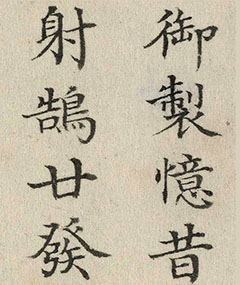 御製憶昔
射鵠廿發